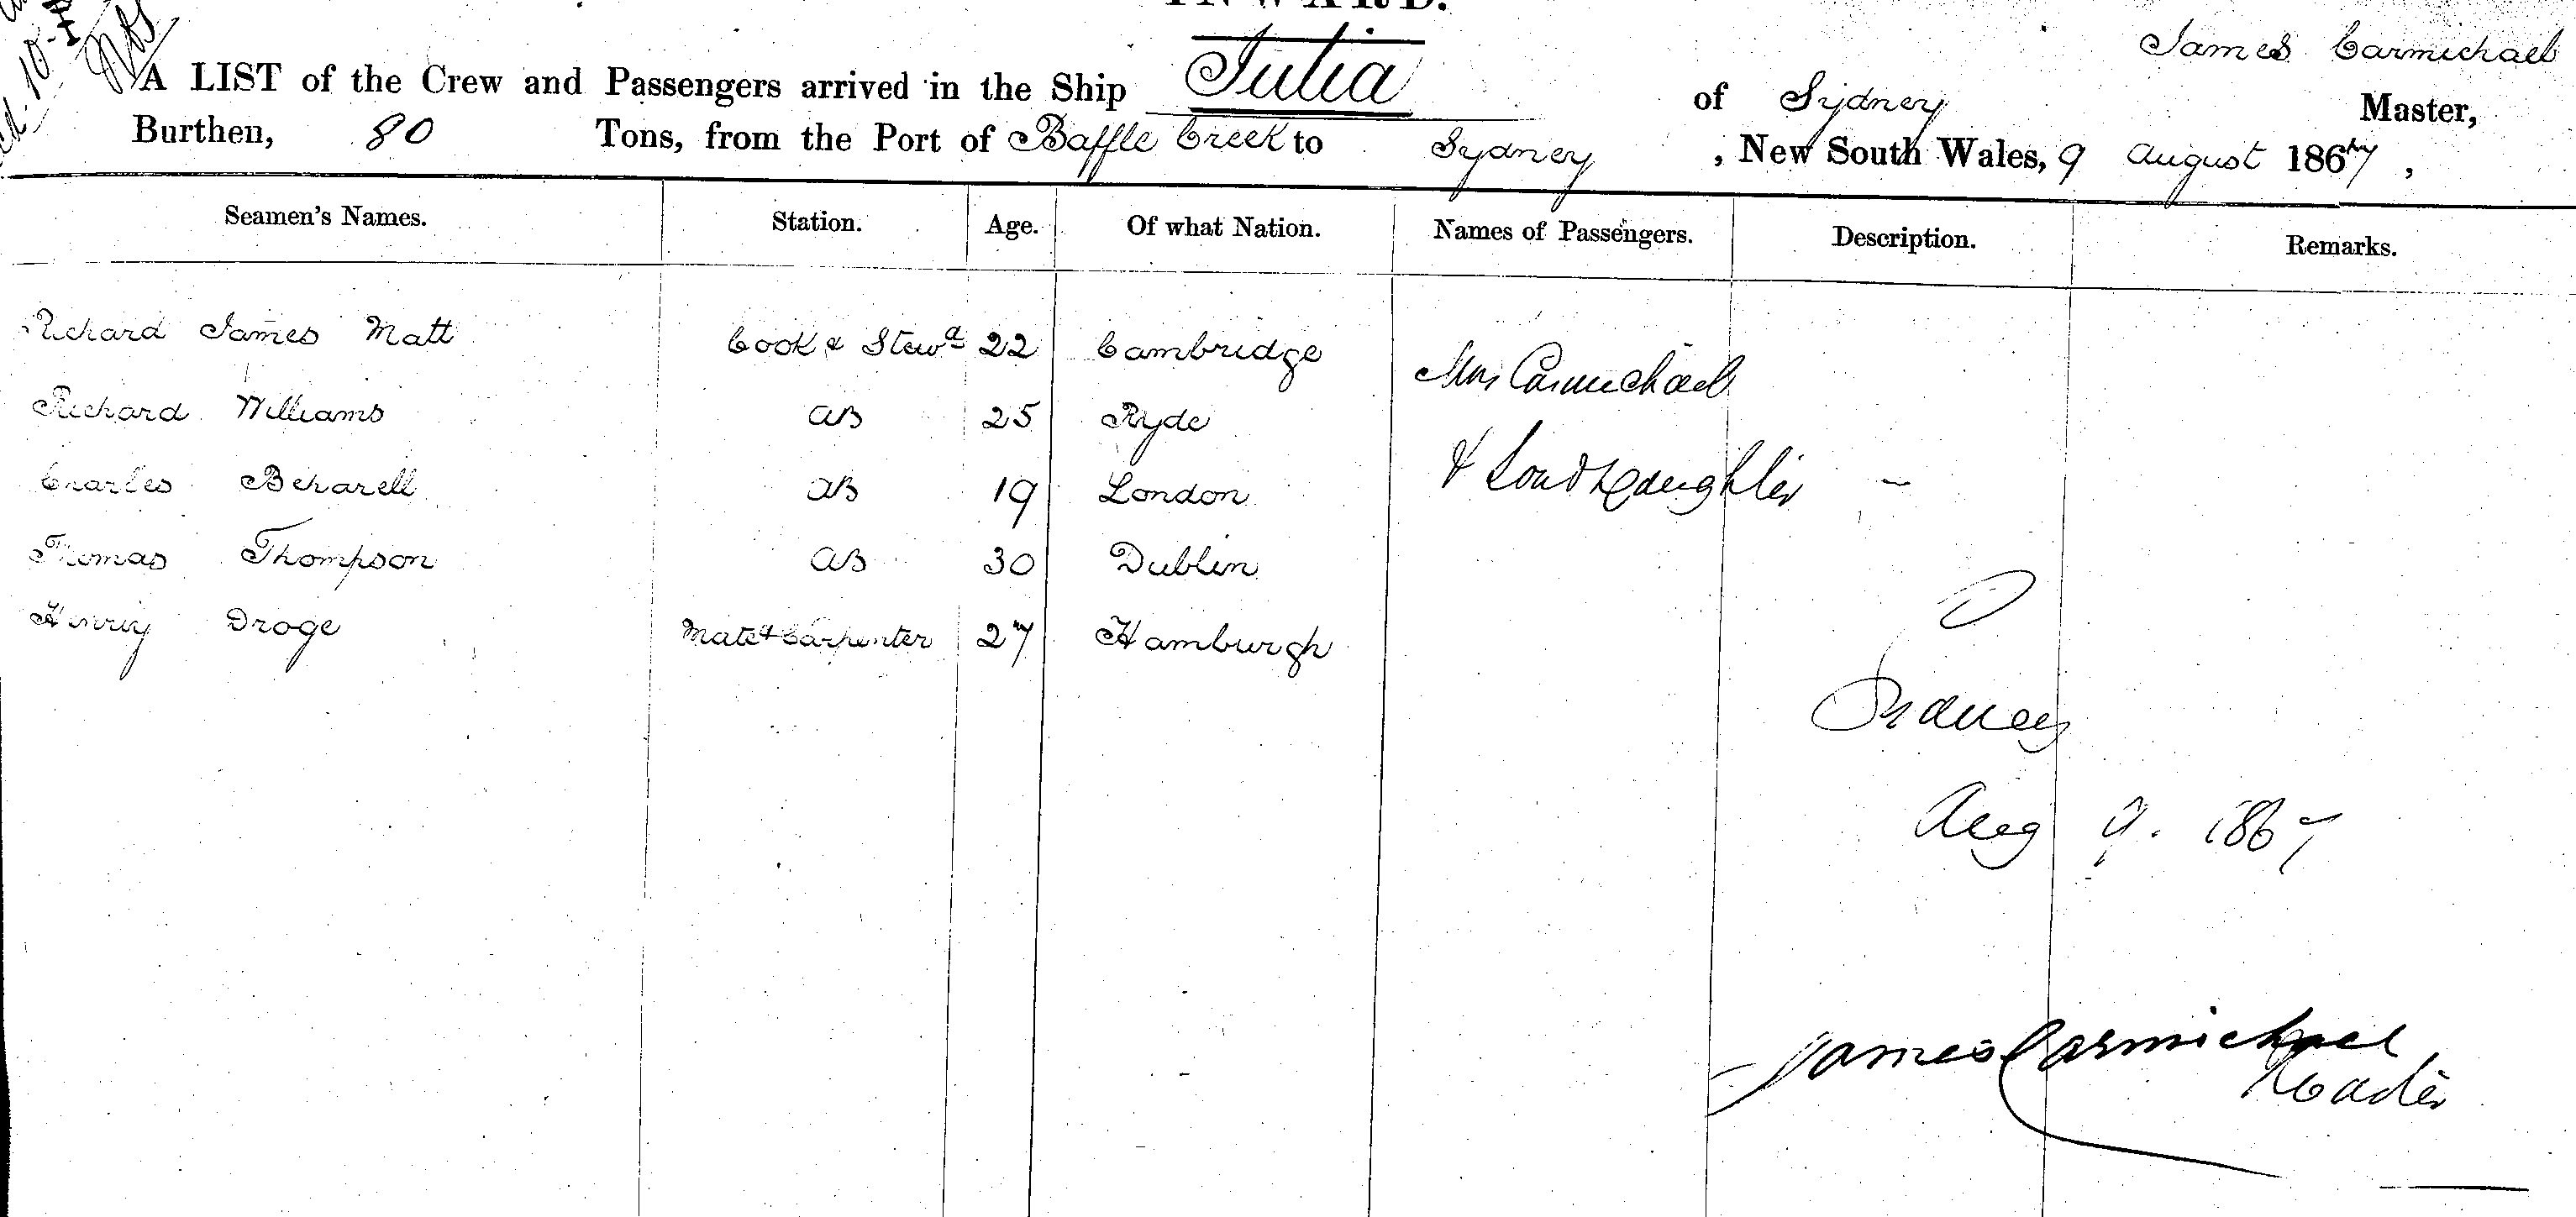 INWARD.
James Carmichael
A LIST of the Crew and Passengers arrived in the Ship Julia of Sydney Master,
Burthen, 80 Tons, from the Port of Baffle Creek to Sydney , New South Wales, 9 August 1867 ,
Seamen's Names. Station. Age. Of what Nation. Names of Passengers. Description. Remarks.
Richard James Matt Cook & Stewd 22 Cambridge Mrs Carmichael
Richard Williams AB 25 Ryde
Charles Beharell AB 19 London & Son & Daughter –
Thomas Thompson AB 30 Dublin
Henry Droge Mate & Carpenter 27 Hamburgh
Sydney
Aug 9. 1867
James Carmichael